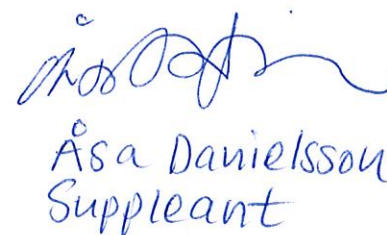 Åsa Danielsson
Suppleant